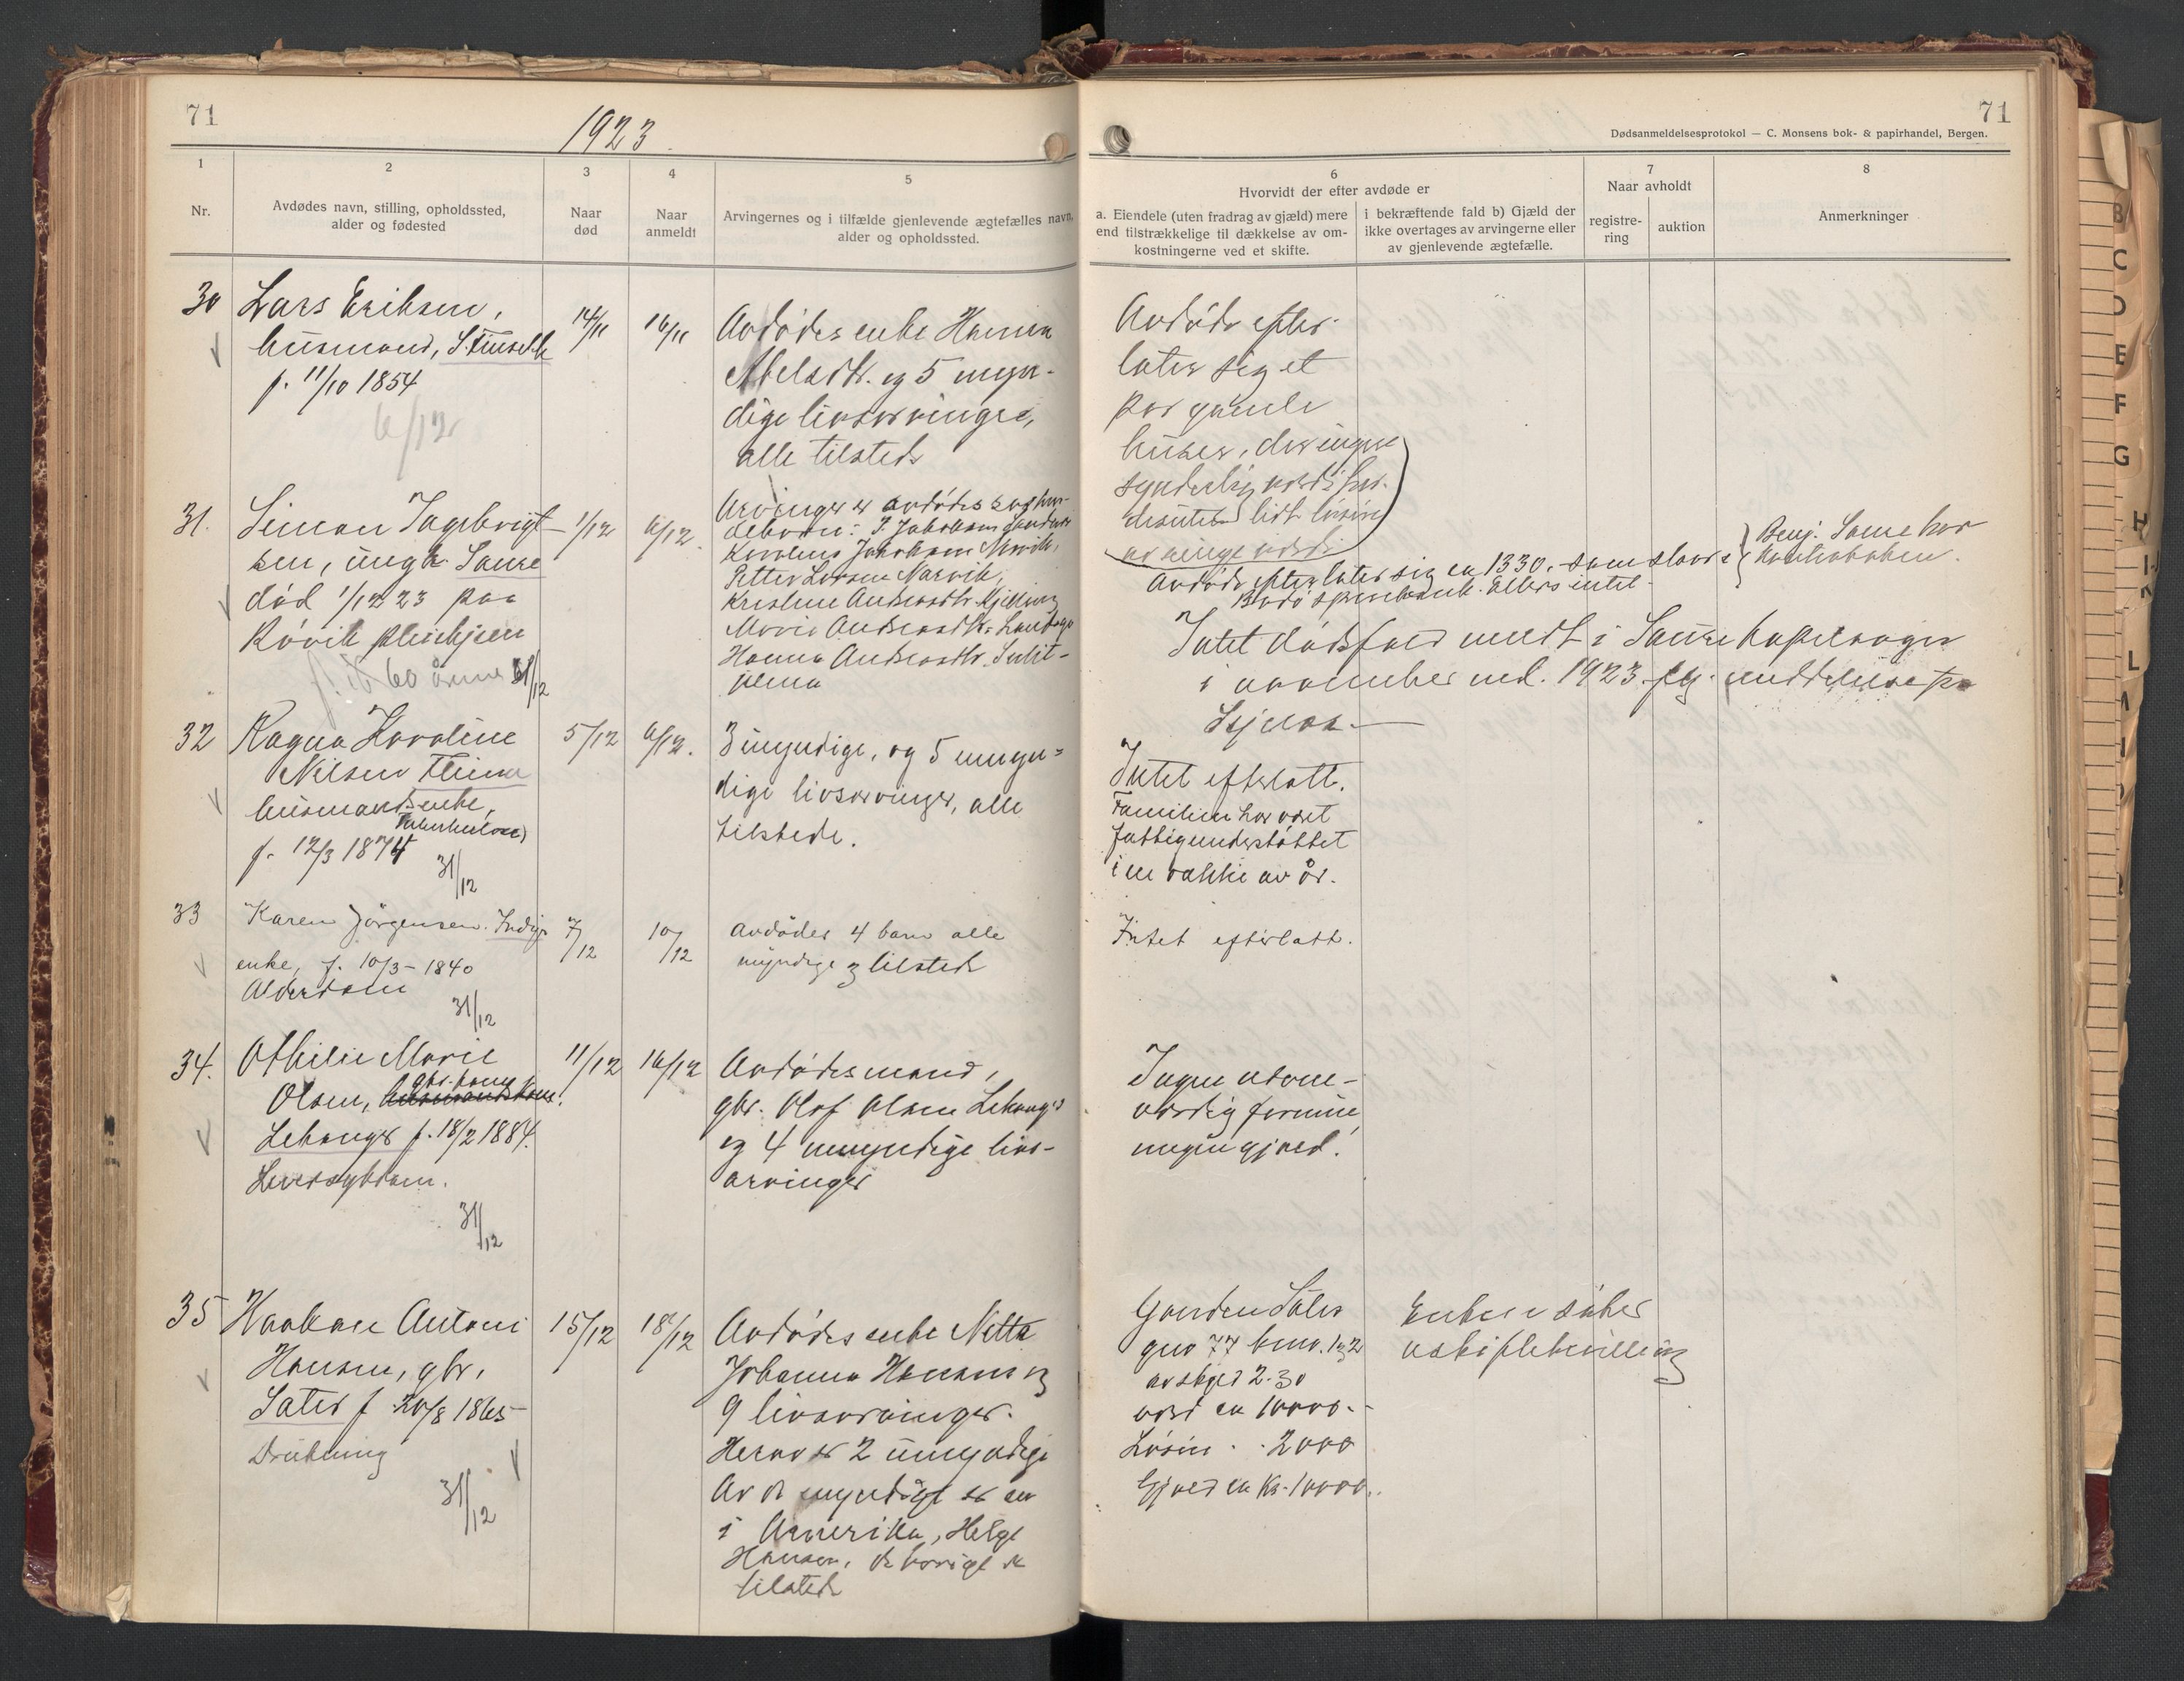 71
1923.
71
Dødsanmeldelsesprotokol — C. Monsens bok- & papirhandel, Bergen.
1
Nr.
2
Avdødes navn, stilling, opholdssted,
alder og fødested
3
Naar
død
4
Naar
anmeldt
5
Arvingernes og i tilfælde gjenlevende ægtefælles navn,
alder og opholdssted.
6
Hvorvidt der efter avdøde er
a. Eiendele (uten fradrag av gjæld) mere
end tilstrækkelige til dækkelse av om-
kostningerne ved et skifte.
i bekræftende fald b) Gjæld der
ikke overtages av arvingerne eller
av gjenlevende ægtefælle.
7
Naar avholdt
registre-
ring
auktion
8
Anmerkninger
30
Lars Eriksen,
husmand,
f. 11/10 1854
6/12
14/11
16/11
Avdødes enke Hanna
og 5 myn-
dige livsarvinger,
alle tilstede
Avdøde efter-
later sig et
par gamle
huser, der ingen
synderlig værdi har.
desuten lidt løsøre
av ringe værdi
31.
Simon Ingebrigt-
sen, ungk. Saura
død 1/12 23 paa
Røvik pleiehjem
60 årene 31/12
1/12
6/12.
Arvinger er avdødes
Jakobsen
Karoline Jakobsen
Petter Larsen Narvik,
Kristine Andreasdtr.
Marie Andreasdtr.
Hanna Andreasdtr. Sulit-
jelma
Avdøde efterlater sig ca 1330.- som staar i
Bodø sparebank. Ellers intet
Benj. Saura har
kontraboken.
Intet dødsfald meldt i Saura kapelsogn
i november md. 1923. flg. meddelelse fra
32
Ragna Karoline
Nilsen
husmandsenke,
Tuberkulose
f. 12/3 1874
31/12
5/12
6/12.
3 myndige, og 5 umyn-
dige livsarvinger, alle
tilstede.
Intet efterlatt.
Familien har været
fattigunderstøttet
i en række av år.
33
Karen Jørgensen. Indyr
enke, f. 10/3-1840
Alderdom
31/12
7/12
10/12
Avdødes 4 barn alle
myndige og tilstede
Intet efterlatt.
34.
Othilie Marie
gbr. kone
Olsen, husmandskone.
f. 18/2 1884.
Leversygdom.
31/12
11/12
16/12
Avdødes mand,
gbr. Olaf Olsen
og 4 umyndige livs-
arvinger
Ingen nævne-
værdig formue,
ingen gjæld.
35
Haakon Antoni
Hansen, gbr.
Sæter f 20/8 1865
Drukning
31/12
15/12
18/12
Avdødes enke Netta
Johanna Hansen og
9 livsarvinger.
Herav er 2 umyndige
Av de myndige er en
i Amerika, Helge
Hansen, de øvrige er
tilstede
Gaarden Sæter
gno 77 bno. 1 og 2
av skyld 2.30
værd ca 10000.-
Løsøre 2000
Gjæld ca Kr. 10000.
Enken søker
uskiftebevilling